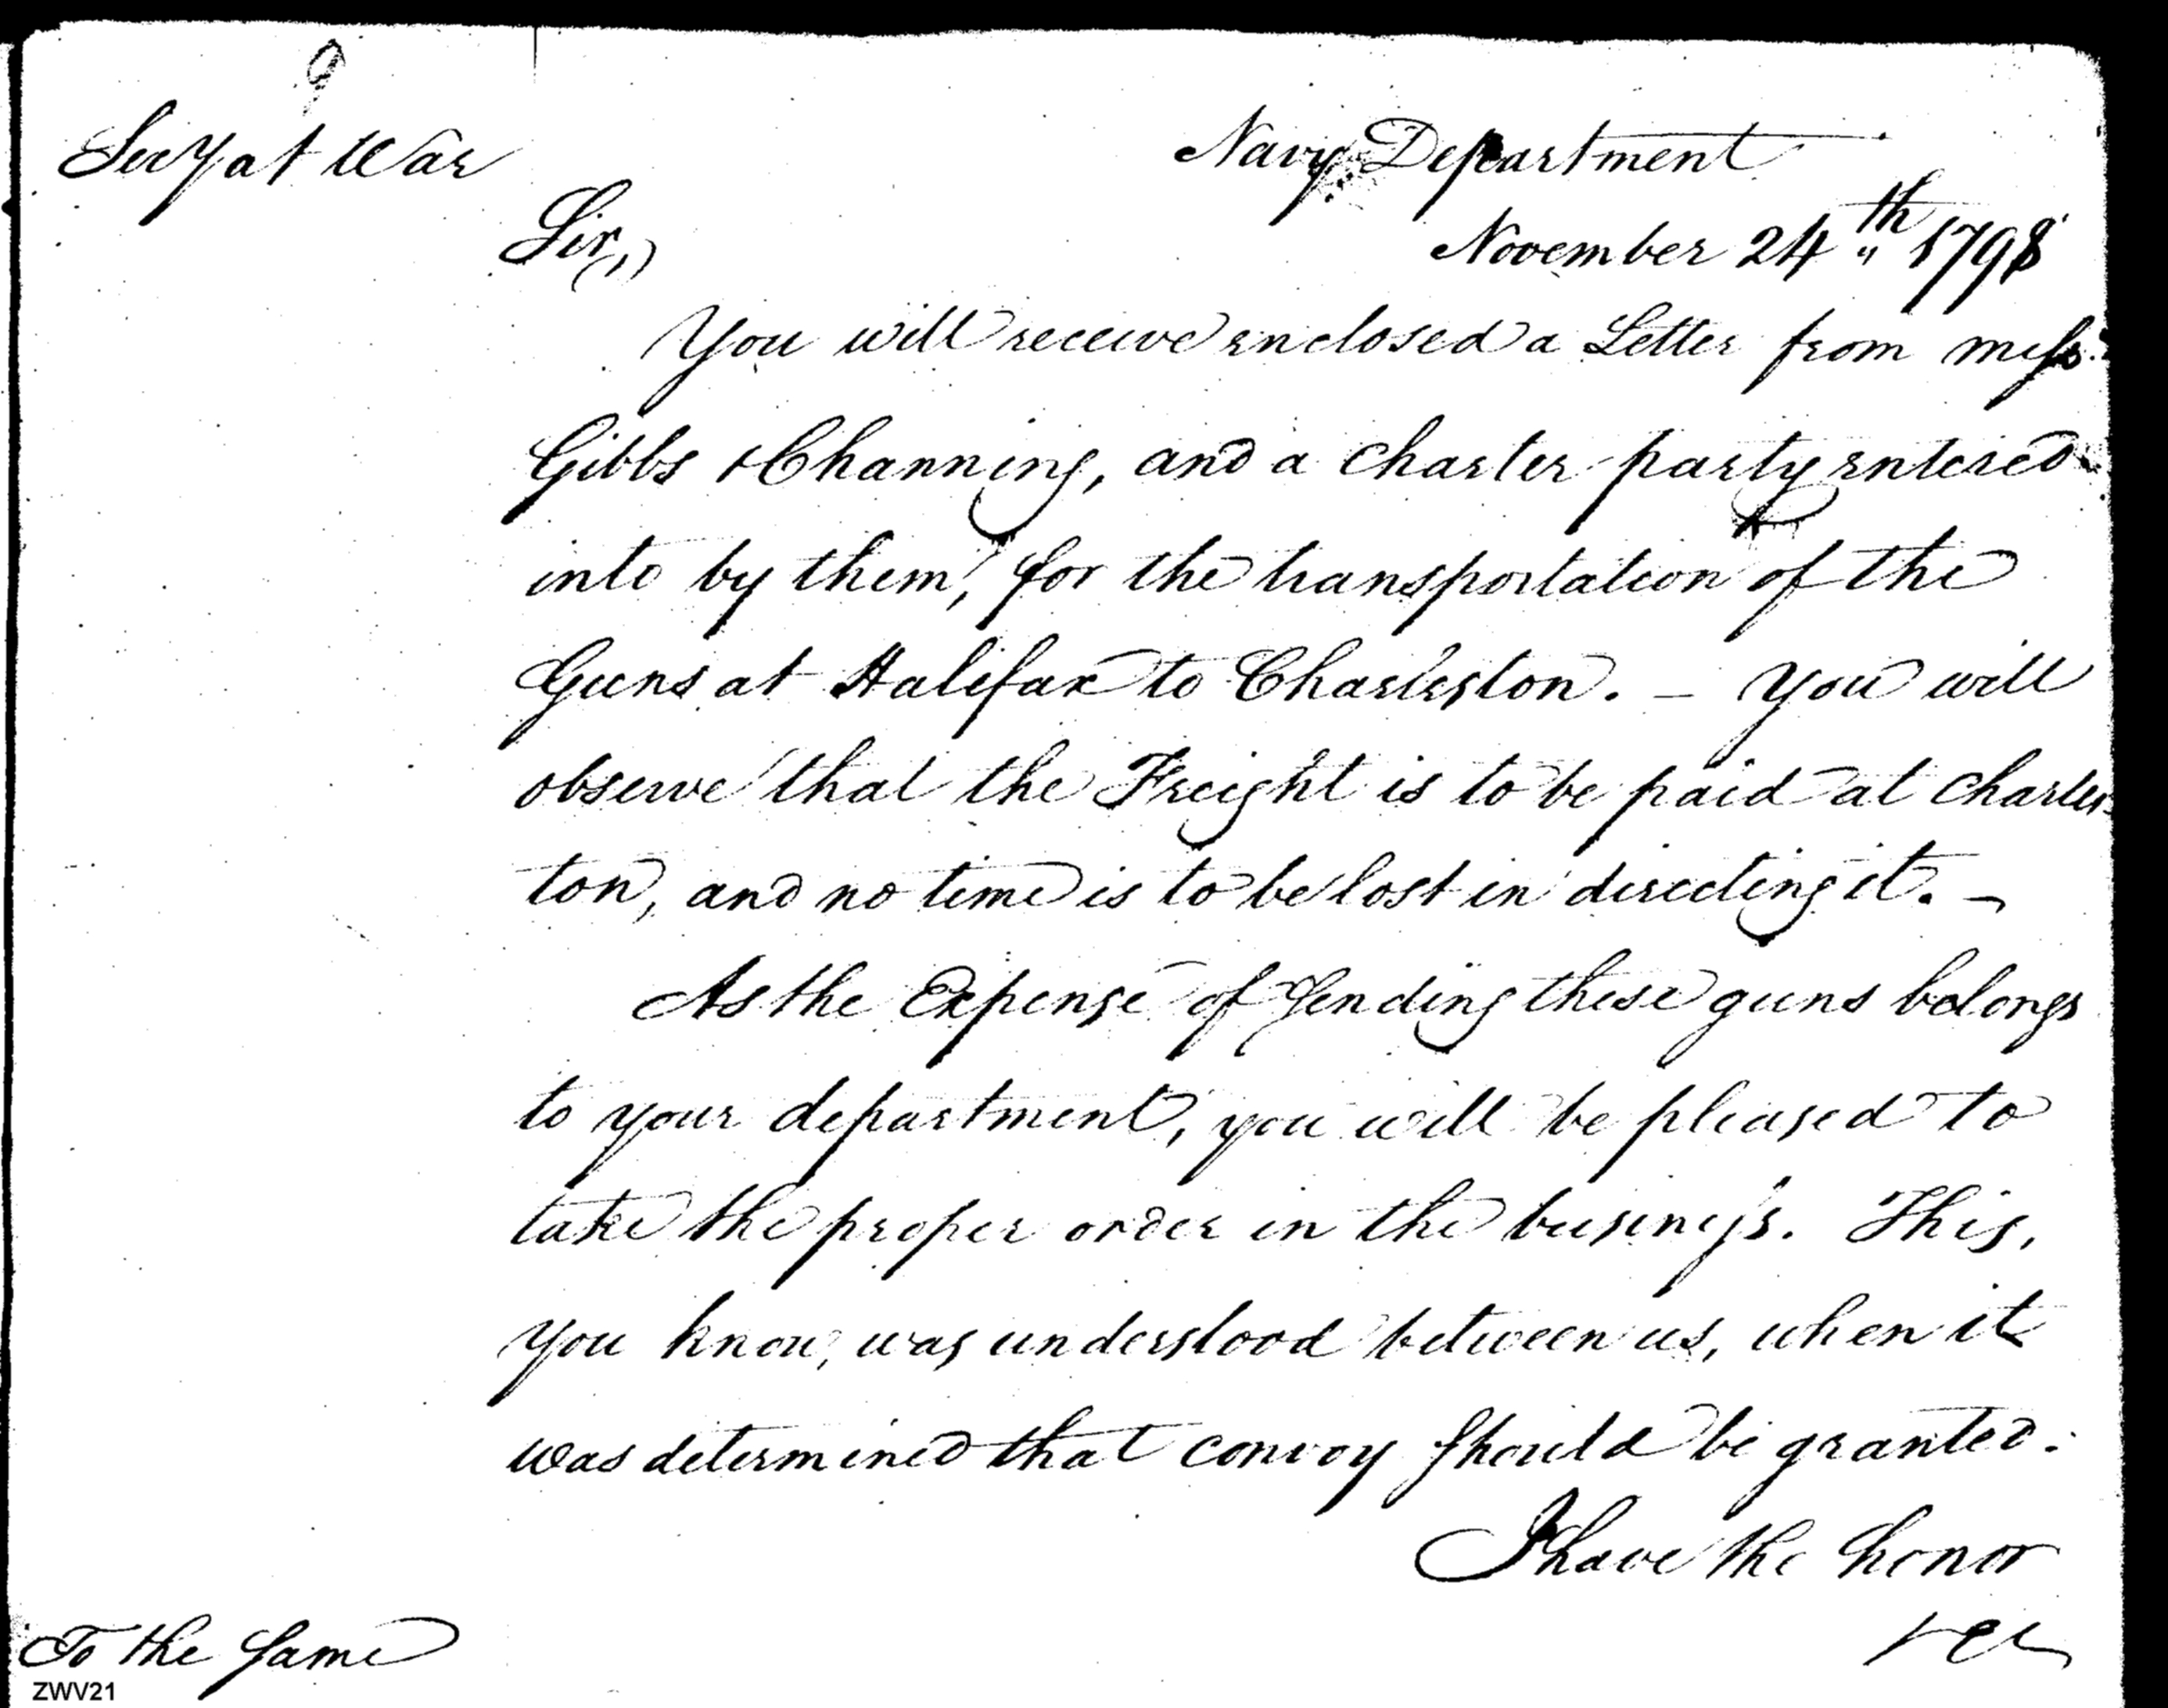 9
Secy at War
Navy Department
November 24th 1798
Sir,
You will receive enclosed a Letter from Messrs.
Gibbs & Channing, and a charter party entered
into by them, for the transportation of the
Guns at Halifax to Charleston. – You will
observe that the Freight is to be paid at Charles-
ton, and no time is to be lost in directing it. –
As the Expense of sending these guns belongs
to your department, you will be pleased to
take the proper order in the business. This,
you know, was understood between us, when it
was determined that convoy should be granted.
I have the honor
&c
To the Same
ZWV21